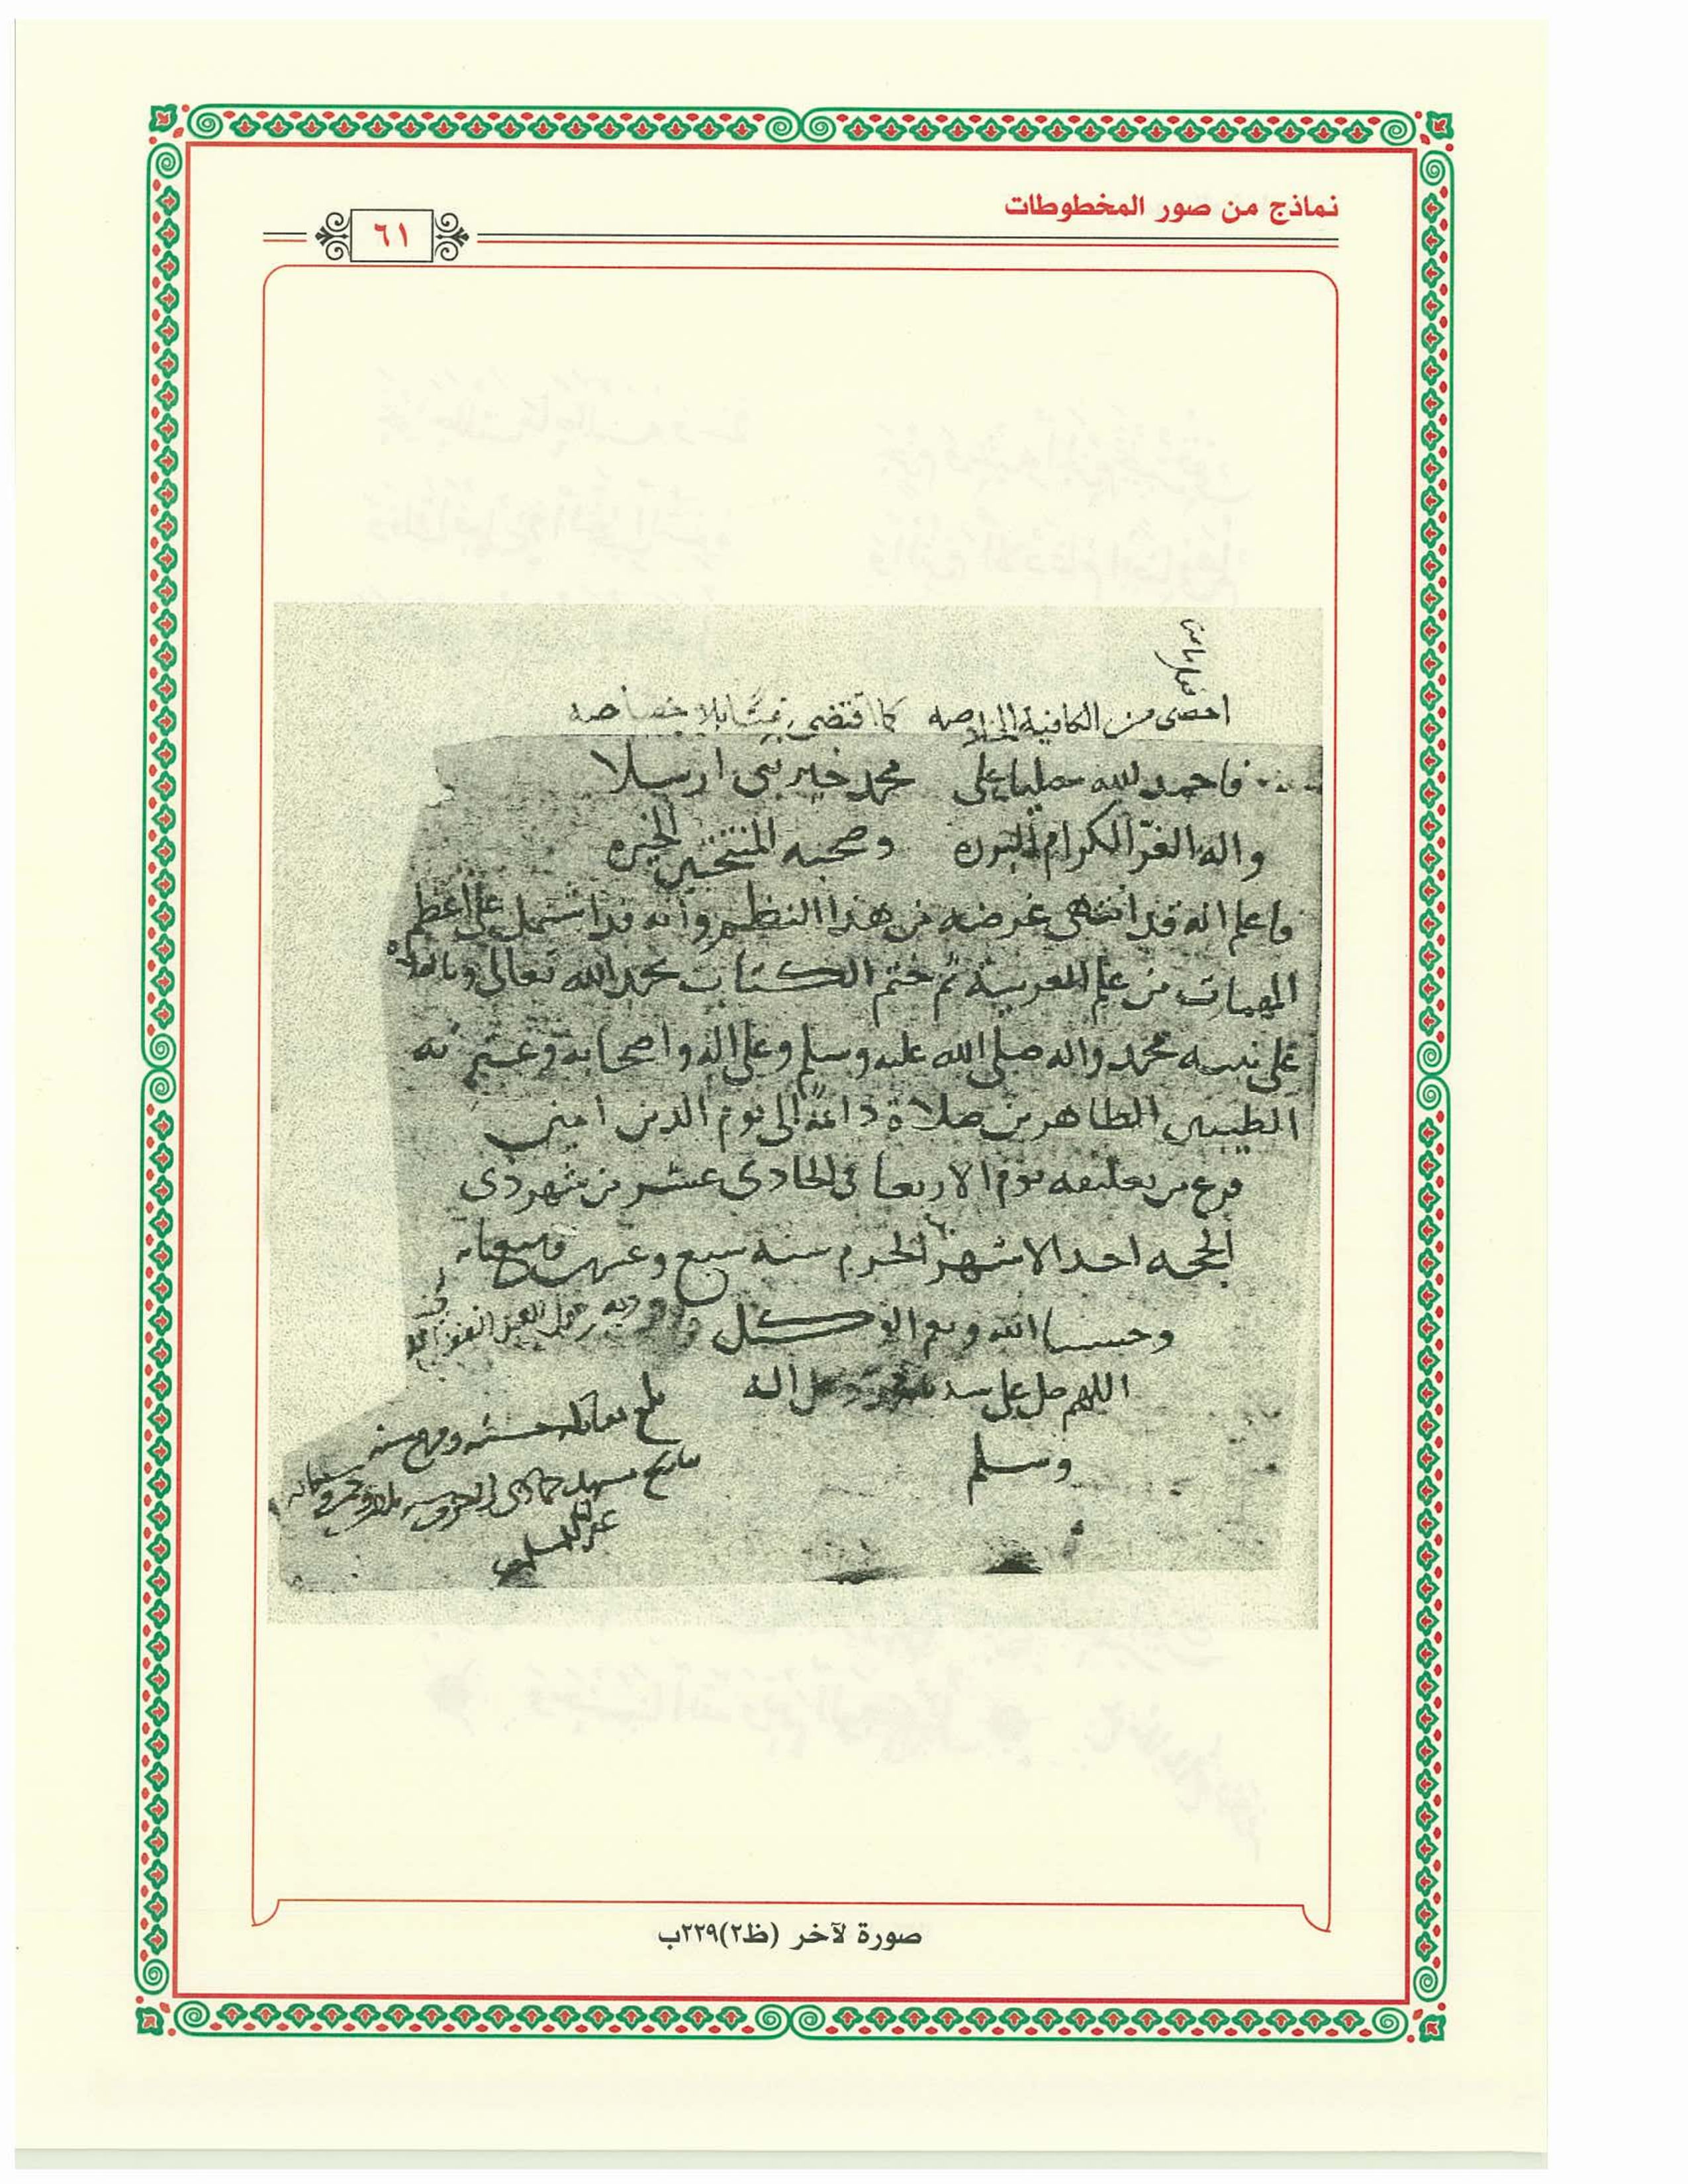 نماذج من صور المخطوطات
٦١
احصى من الكافية الخلاصه كما اقتضى بلا خصاصه
فاحمد لله مصليا على محمد خير نبى ارسلا
واله الغر الكرام البرره وصحبه المنتخبين الخيره
فاعلم انه قد انتهى غرضه من هذا النظم وانه قد اشتمل على اعظم
المهمات من علم العربية ثم ختم الكتاب بحمد الله تعالى
على نبيه محمد واله صلى الله عليه وسلم وعلى اله واصحابه وعترته
الطيبين الطاهرين صلاة دائمة الى يوم الدين امين
فرغ من تعليقه يوم الاربعا فى الحادى عشر من شهر ذى
الحجه احد الاشهر الحرم سنة سبع وسبعمايه
وحسبنا الله ونعم الوكيل
اللهم صل على سيدنا محمد وعلى اله
وسلم
صورة لآخر (ظ٢)٢٢٩ب